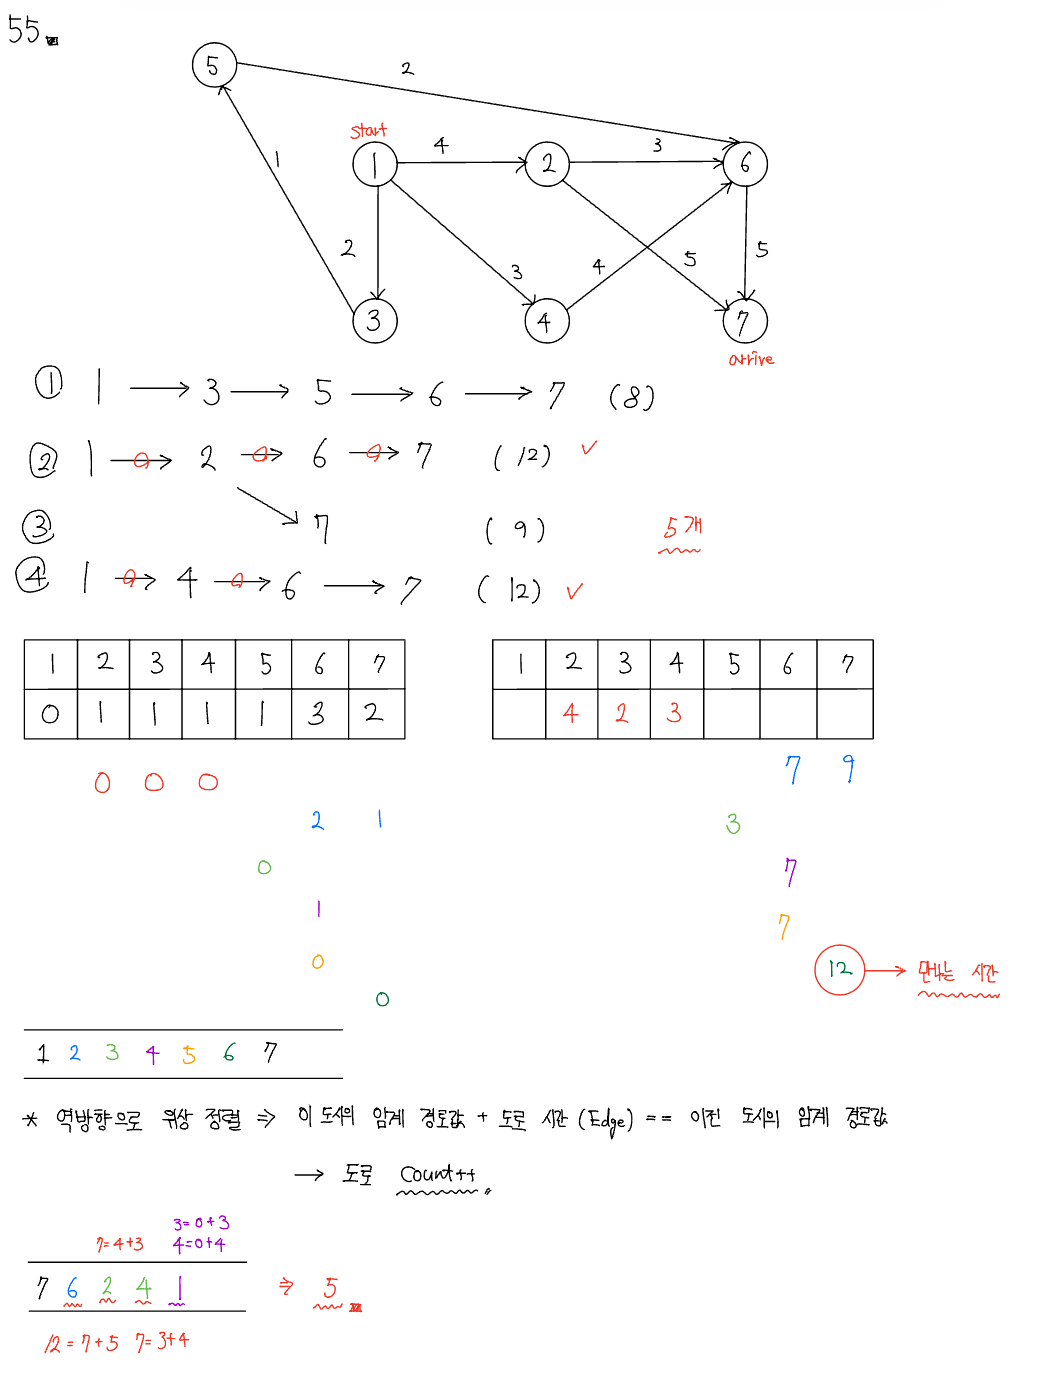 55.
5
2
start
1
4
2
3
6
1
2
3
4
5
5
3
4
7
arrive
① 1 → 3 → 5 → 6 → 7 (8)
② 1 → 2 → 6 → 7 (12) ✓
③ 7 (9) 5개
④ 1 → 4 → 6 → 7 (12) ✓
1 2 3 4 5 6 7
0 1 1 1 1 3 2
0 0 0
2 1
0
1
0
0
1 2 3 4 5 6 7
4 2 3
7 9
3
7
7
12 → 만나는 시간
1 2 3 4 5 6 7
* 역방향으로 위상 정렬 ⇒ 이 도시의 임계 경로값 + 도로 시간 (Edge) == 이전 도시의 임계 경로값
→ 도로 Count++
3=0+3
7=4+3 4=0+4
7 6 2 4 1 ⇒ 5
12=7+5 7=3+4